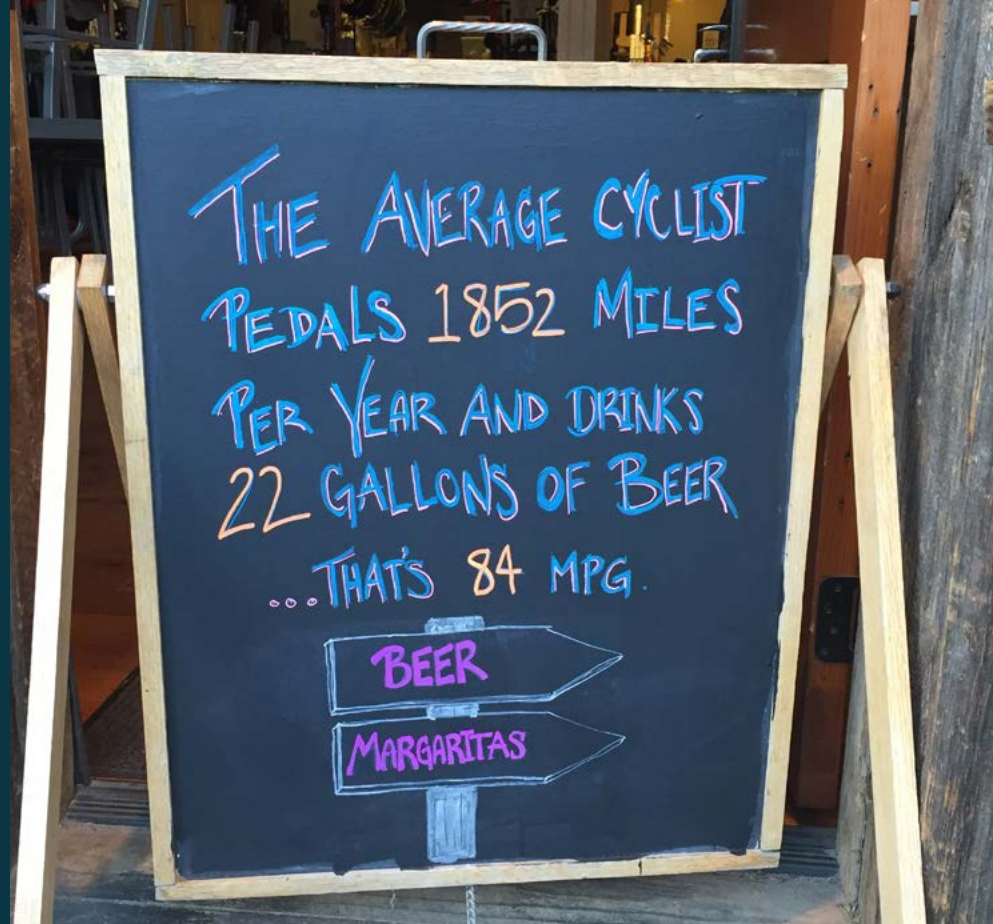 THE AVERAGE CYCLIST
PEDALS 1852 MILES
PER YEAR AND DRINKS
22 GALLONS OF BEER
...THAT'S 84 MPG.
BEER
MARGARITAS